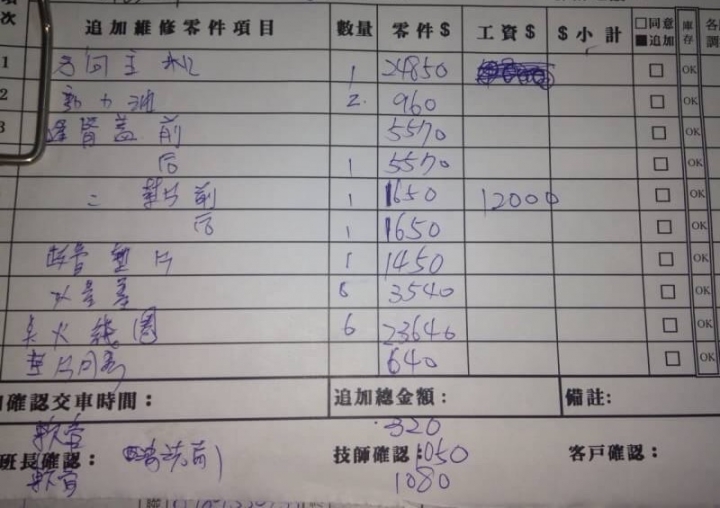 次 追加維修零件項目 數量 零件$ 工資$ $小計 □同意 ■追加 庫存
1 方向主機 1 24850 OK
2 動力油 2 960 OK
3 前 5570 OK
后 1 5570 OK
二 墊片 前 1 1650 12000 OK
后 1 1650 OK
墊片 1 1450 OK
火星塞 6 3540 OK
点火線圈 6 23640 OK
640 OK
確認交車時間： 追加總金額： 備註:
軟管 320
班長確認： 技師確認： 1050 客戶確認：
軟管 1080